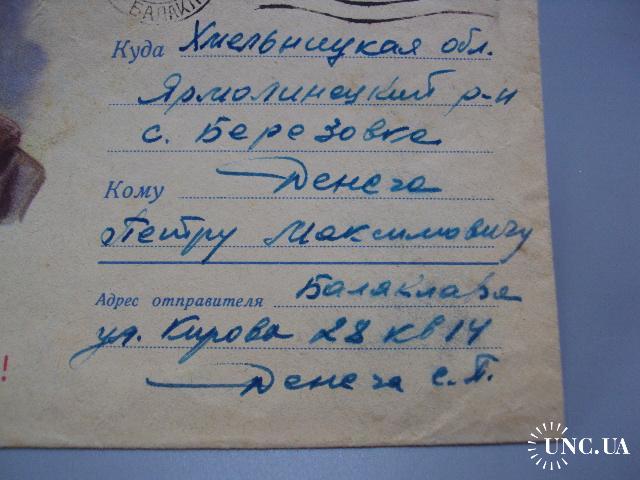 БАЛАКЛ
Куда Хмельницкая обл.
Ярмолинецкий р-н
с. Березовка
Кому Денега
Петру Максимовичу
Адрес отправителя Балаклея
ул. Кирова 28 кв 14
Денега С.П.
!
UNC.UA